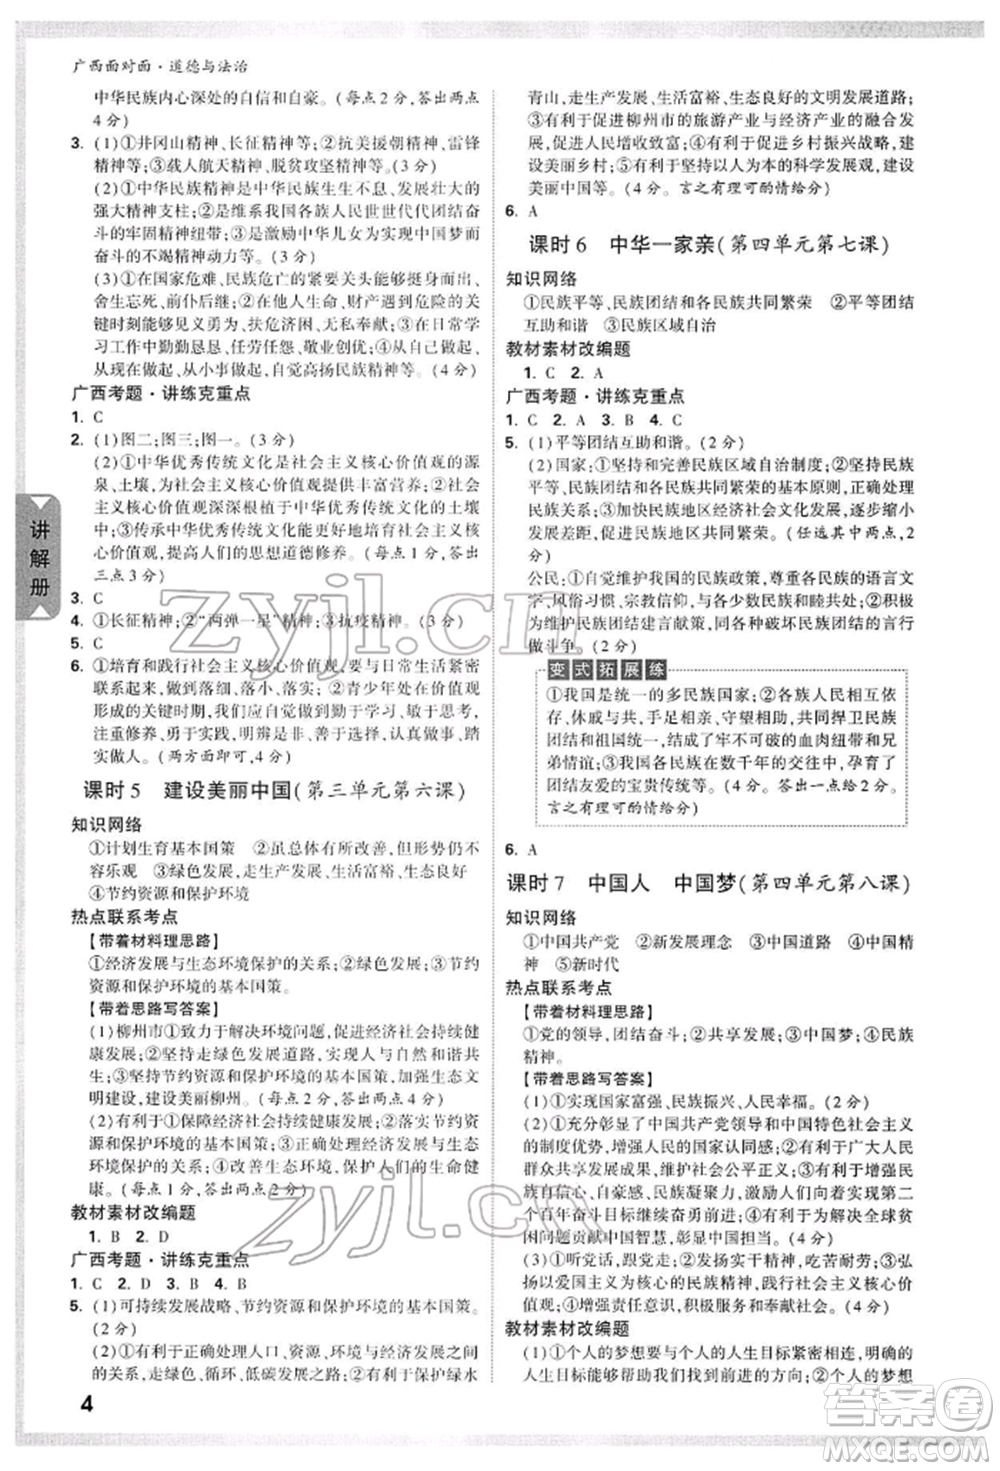 广西面对面·道德与法治
中华民族内心深处的自信和自豪。(每点2分,答出两点
4分)
3. (1)①井冈山精神、长征精神等;②抗美援朝精神、雷锋
精神等;③载人航天精神、脱贫攻坚精神等。(3分)
(2)①中华民族精神是中华民族生生不息、发展壮大的
强大精神支柱;②是维系我国各族人民世世代代团结奋
斗的牢固精神纽带;③是激励中华儿女为实现中国梦而
奋斗的不竭精神动力。(6分)
(3)①在国家危难、民族危亡的紧要关头,挺身而出、
舍生忘死、前仆后继;②在他人生命、财产遇到危险
时刻能够见义勇为、扶危济困、无私奉献;③在日常学
习工作中勤勤恳恳、任劳任怨、敬业创优;④从自己做起、
从现在做起、从小事做起,自觉高扬民族精神。(4分)
广西考题·讲练克重点
1. C
2. (1)图二;图三;图一。(3分)
(2)①中华优秀传统文化是社会主义核心价值观的源
泉、土壤,为社会主义核心价值观提供丰富营养;②社会
主义核心价值观深深根植于中华优秀传统文化的土壤
中;③传承中华优秀传统文化能更好地培育社会主义核
心价值观,提高人们的思想道德修养。(每点1分,答出
三点3分)
3. C
4. ①长征精神;②“两弹一星”精神;③抗疫精神。
5. C
6. ①培育和践行社会主义核心价值观,要与日常生活紧密
联系起来,落细、落小、落实;②青少年时期处在价值观
形成的关键时期,我们应自觉加强青年勤于学习、敏于求知,
注重修养、勇于实践,明辨是非、善于抉择,踏实做事、
踏实做人。(两方面即可)(4分)
课时5 建设美丽中国(第三单元第六课)
知识网络
①计划生育基本国策 ②虽总体有所改善,但生态状况仍不
容乐观 ③绿色发展、走生产发展、生活富裕、生态良好
④节约资源和保护环境
热点联系考点
【带着材料理思路】
①经济发展与生态环境保护的关系;②绿色发展;③节约
资源和保护环境的基本国策。
【带着思路写答案】
(1)柳州市①致力于解决环境问题,促进经济持续健
康发展;②坚持走绿色发展道路,实现人与自然和谐共
生;③坚持节约资源和保护环境的基本国策,加强生态文
明建设,建设美丽柳州。(每点2分,答出两点4分)
(2)有利于①保障经济社会可持续发展;②落实节约资
源和保护环境的基本国策;③正确处理经济发展与生态
环境保护的关系;④改善生态环境,保障人们的生命健
康。(每点1分,答出两点2分)
教材素材改编题
1. B 2. D
广西考题·讲练克重点
1. C 2. D 3. B 4. B
5. (1)可持续发展战略、节约资源和保护环境的基本国策。
(2分)
(2)①有利于正确处理人口、资源、环境与经济发展之间
的关系,走绿色、循环、低碳发展之路;②有利于保护绿水
青山,走生产发展、生活富裕、生态良好的文明发展道路;
③有利于促进柳州市的旅游产业与经济产业的共同发
展,促进人民增收致富;④有利于实施乡村振兴战略,
建设美丽乡村;⑤有利于坚持以人为本的科学发展观,建设
美丽中国等。(4分。言之有理可酌情给分)
6. A
课时6 中华一家亲(第四单元第七课)
知识网络
①民族平等、民族团结和各民族共同繁荣 ②平等团结
互助和谐 ③民族区域自治
教材素材改编题
1. C 2. A
广西考题·讲练克重点
1. C 2. A 3. B 4. C
5. (1)平等团结互助和谐。(2分)
(2)国家:①坚持和完善民族区域自治制度;②坚持民族
平等、民族团结和各民族共同繁荣的基本原则,正确处理
民族关系;③加快民族地区经济社会发展,逐步缩小
发展差距,实现各民族共同繁荣。(任选其中两点,2
分)
公民:①自觉贯彻民族政策,尊重各民族的语言文字、
风俗习惯、宗教信仰,与各族人民和睦共处;②积极
为促进民族团结作出贡献,同各种破坏民族团结的言行
做斗争。(2分)
变式拓展练
①我国是统一的多民族国家;②各族人民相互依
存、休戚与共,手足相亲、守望相助,共同捍卫民族
团结和祖国统一,结成了牢不可分的血肉纽带和兄
弟情谊;③各民族在数千年的交往、交流中,培育了
团结友爱的宝贵传统等。(任意两点,2分。
言之有理可酌情给分)
6. A
课时7 中国人 中国梦(第四单元第八课)
知识网络
①中国共产党 ②新发展理念 ③中国道路 ④中国精
神 ⑤新时代
热点联系考点
【带着材料理思路】
①党的领导,团结奋斗;②共享发展;③中国梦;④民族
精神。
【带着思路写答案】
(1)①实现国家富强、民族振兴、人民幸福。(2分)
(2)①充分彰显了中国共产党领导和中国特色社会主义
的制度优势,增强人民的政治认同感;②有利于广大人民
群众共享发展成果,维护社会公平正义;③有利于增强民
族自信心、自豪感,民族凝聚力,激励全国人民为实现第二
个百年奋斗目标继续奋斗;④有利于为全球减贫作出
贡献,贡献中国智慧,彰显大国担当。(6分)
(3)①听党话,跟党走;②发扬实干精神,吃苦耐劳;③弘
扬以爱国主义为核心的民族精神,践行社会主义核心
价值观;④增强责任意识,积极服务和奉献社会。(4分)
教材素材改编题
(1)①个人的梦想要与时代的脉搏紧密相连;②个人的梦想
只有同人民的共同目标一致,才能实现人生价值;③个人的梦想
4
讲解册
zyjl.cn
zyjl.cn
答案圈
MXQE.COM